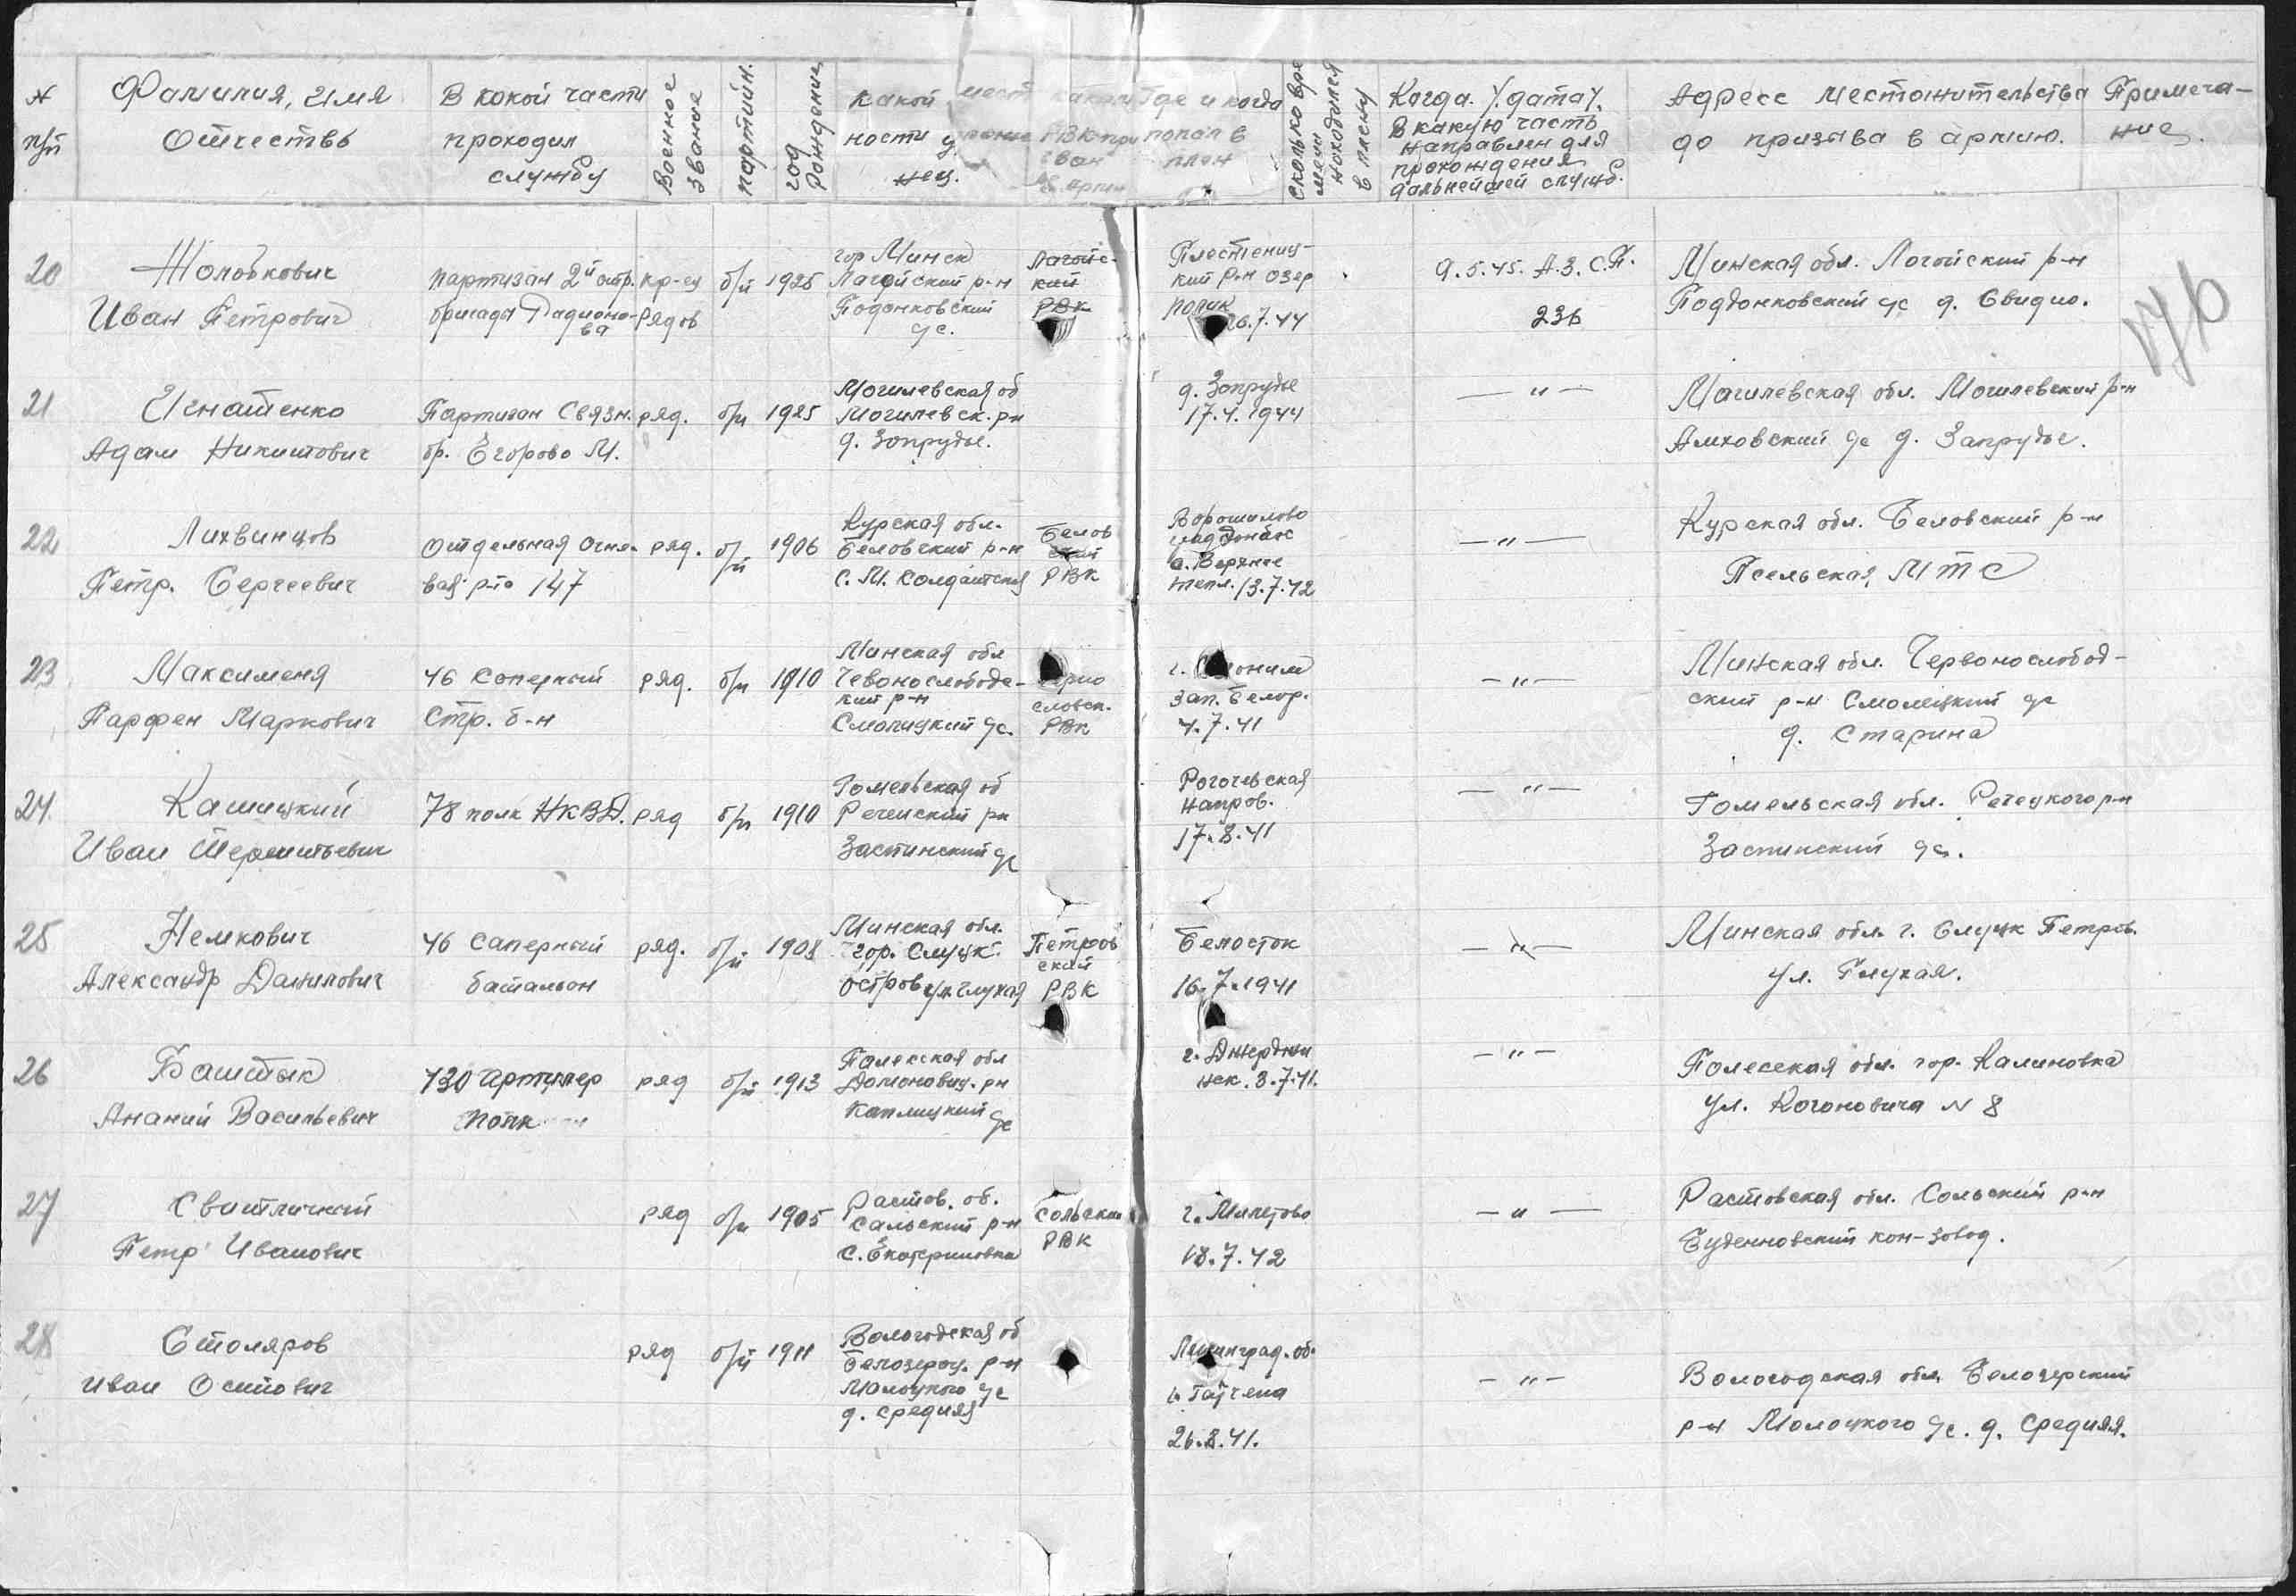 N п/п
Фамилия, имя
Отчество
В какой части
проходил
службу
Военное
звание
партийн.
год
Рождения
какой мест
ности уроже
нец.
каким
РВК при
зван
в арми
Где и когда
попал в
плен
сколько вре
мени
находился
в плену
Когда. /дата/.
В какую часть
направлен для
прохождения
дальнейшей служб.
Адрес местожительства
до призыва в армию.
Примеча-
ние.
20
Жолобкович
Иван Петрович
партизан 2й отр.
бригады Радионо-
ва
кр-ец
рядов
б/п
1925
гор Минск
Лагойский р-н
Подонковский
с/с.
Лагойс-
кий
РВК
Плестениц-
кий р-н озер
полик
26.7.44
9.5.45. А.З.С.П.
236
Минская обл. Логойский р-н
Поддонковский с/с д. Свидно.
21
Игнатенко
Адам Никитович
Партизан Связн.
бр. Егорова М.
ряд.
б/п
1925
Могилевская об
Могилевск. р-н
д. Запрудье.
д. Запрудье
17.4.1944
— " —
Могилевская обл. Могилевский р-н
Амховский с/с д. Запрудье.
22
Лихвинцов
Петр. Сергеевич
Отдельная огне-
вая р-та 147
ряд.
б/п
1906
Курская обл.
Беловский р-н
с. М. Солдатская
Белов
ский
РВК
Ворошилово
град Донбас
с. Верхнее
тепл. 13.7.42
— " —
Курская обл. Беловский р-н
Псельская МТС
23
Максименя
Парфен Маркович
46 Саперный
Стр. б-н
ряд.
б/п
1910
Минская обл
Чевонослободс-
кий р-н
Смолицкий с/с.
словск.
РВК
г. Слоним
Зап. Белор.
4.7.41
— " —
Минская обл. Червонослобод-
ский р-н Смолецкий с/с
д. Старина
24
Кашицкий
Иван Терентьевич
78 полк НКВД.
ряд
б/п
1910
Гомельская об
Речицкий р-н
Заспинский с/с
Рогочевская
напров.
17.8.41
— " —
Гомельская обл. Речецкого р-н
Заспинский с/с.
25
Немкович
Александр Данилович
46 Саперный
батальон
ряд.
б/п
1908
Минская обл.
гор. Слуцк.
остров ул. глухая
Петров
ский
РВК
Белосток
16.7.1941
— " —
Минская обл. г. Слуцк Петров.
ул. Глухая.
26
Баштык
Ананий Васильевич
430 Артилер
полк
ряд
б/п
1913
Полесская обл
Домонович. р-н
Каплицкий с/с
г. Джержи
нск. 3.7.41.
— " —
Полесская обл. гор. Калиновка
ул. Когоновича N 8
27
Свитличный
Петр Иванович
ряд
б/п
1905
Растов. об.
Сальский р-н
с. Екатериновка
Сольским
РВК
г. Милерово
18.7.42
— " —
Растовская обл. Сольский р-н
Буденновский кон-завод.
28
Столяров
Иван Осипович
ряд
б/п
1911
Вологодская об
Белозерск. р-н
Молоцкого с/с
д. Средняя
Ленинград. об.
г. Гатчена
26.8.41.
— " —
Вологодская обл. Белозерский
р-н Молоцкого с/с. д. Средняя.